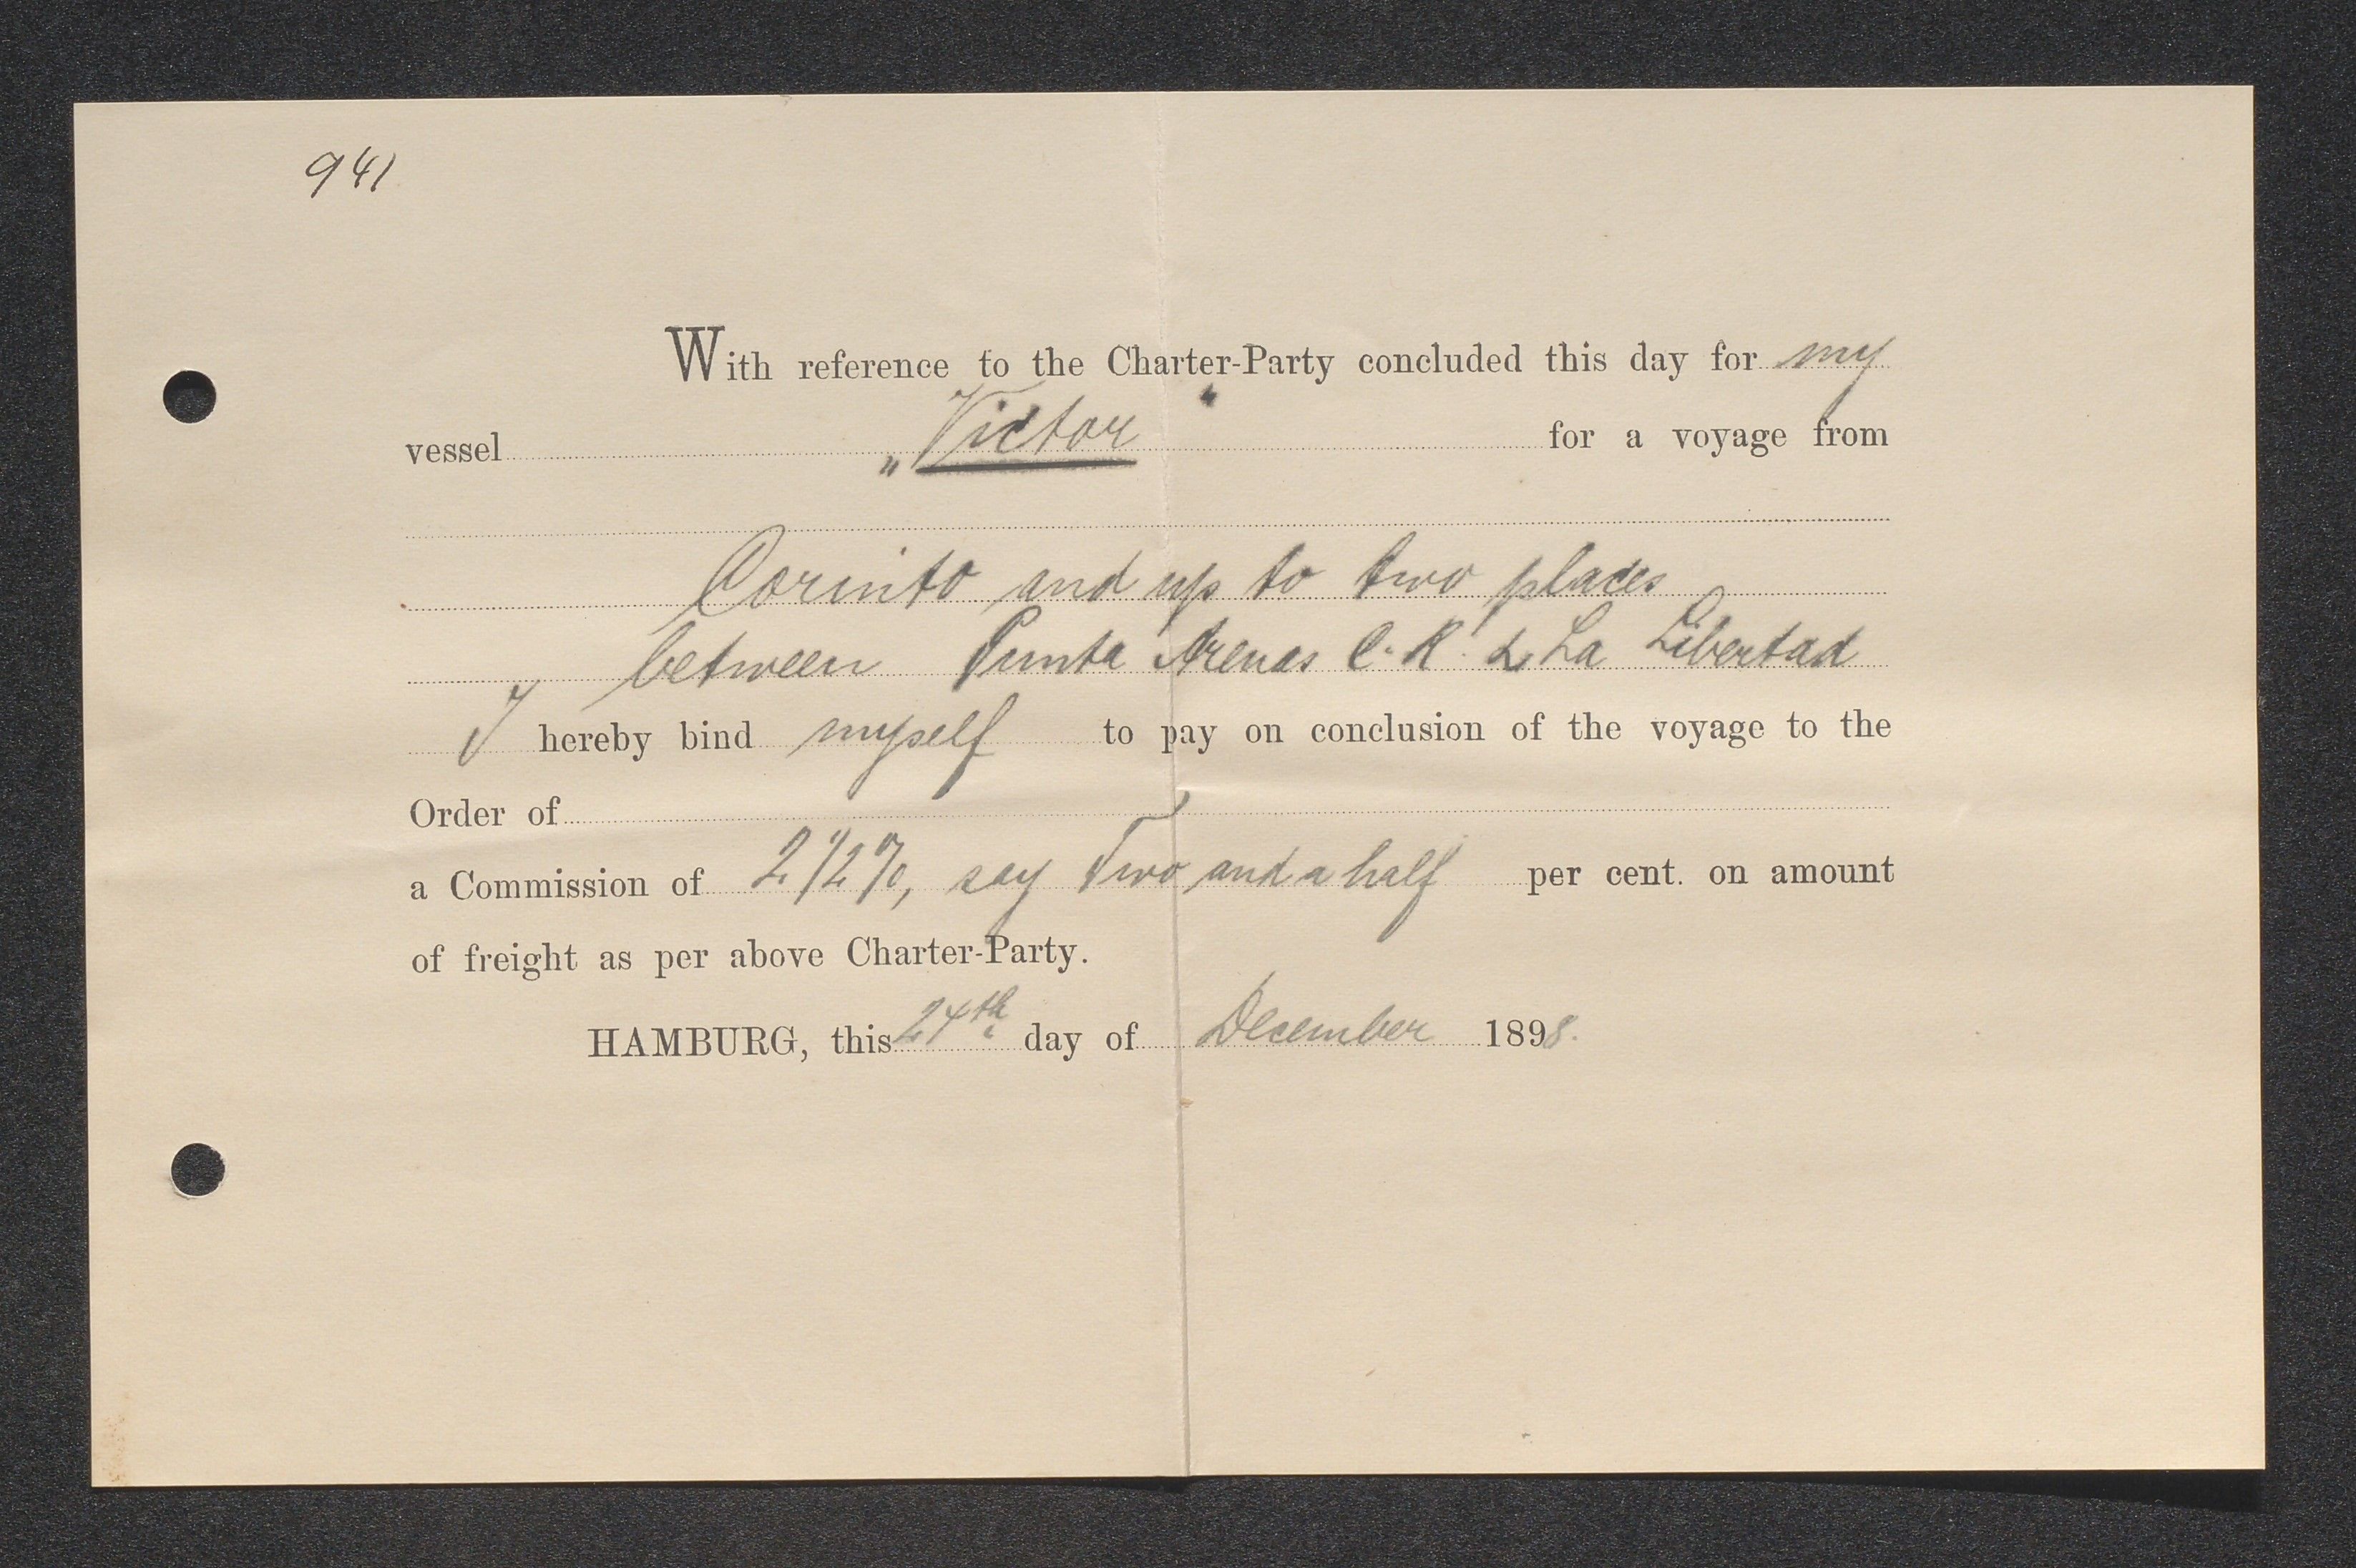 941
With reference to the Charter-Party concluded this day for my
vessel „Victor“ for a voyage from
Corinto and up to two places
between Punta Arenas C. R. & La Libertad
I hereby bind myself to pay on conclusion of the voyage to the
Order of
a Commission of 2 1/2 %, say Two and a half per cent. on amount
of freight as per above Charter-Party.
HAMBURG, this 24th day of December 1898.